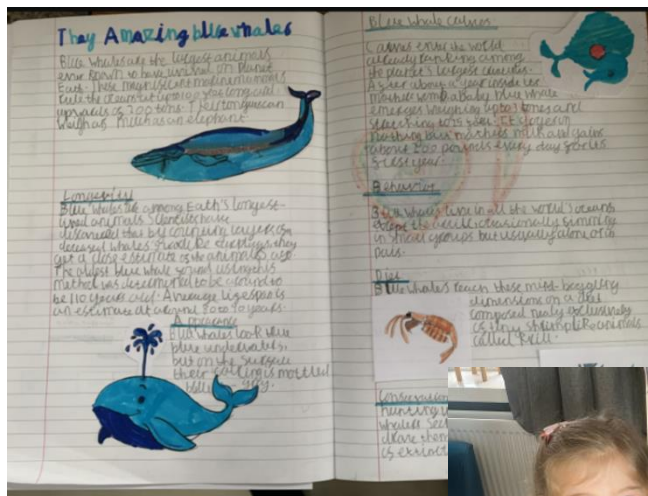 They Amazing blue whales
Blue whales are the largest animals
ever known to have lived on planet
Earth. These magnificent marine mammals
rule the oceans at up to 100 feet long and
upwards of 200 tons. Their tongues can
weigh as much as an elephant
Longevity
Blue whales are among Earth's longest-
lived animals. Scientists have
discovered that by counting layers of a
deceased whale's earplugs, they
get a close estimate of the animal's age.
The oldest blue whale found using this
method was determined to be around to
be 110 years old. Average lifespan is
an estimate at around 80 to 90 years.
Appearance
Blue whales look blue
blue underwater,
but on the surface
their coloring is mottled
blue - gray.
Blue whale calves
Calves enter the world
already ranking among
the planet's largest creatures.
After about a year inside its
mother's womb a baby blue whale
emerges weighing up to 3 tones and
stretching to 25 feet. It gorges on
nothing but mother's milk and gains
about 200 pounds every day for its
first year.
Behavior
Blue whales live in all the world's oceans
except the arctic, occasionally swimming
in small groups but usually alone or in
pairs.
Diet
Blue whales reach these mind-boggling
dimensions on a diet
composed nearly exclusively
of tiny shrimplike animals
called krill.
Conservation
hunting
whales
drove them